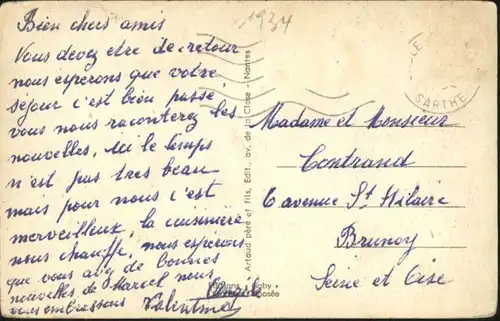 1934
Bien chers amis
Vous devez etre de retour
nous esperons que votre
sejour c'est bien passé
vous nous raconterez les
nouvelles, ici le temps
n'est pas tres beau
mais pour nous c'est
merveilleux, la cuisinière
nous chauffe, nous espérons
que vous avez de bonnes
nouvelles de Marcel nous
vous embrassons Valentine
Artaud père et fils, Edit., av. de la Close - Nantes
Gaby
SARTHE
Madame et Monsieur
Contrand
6 avenue St Hilaire
Brunoy
Seine et Oise